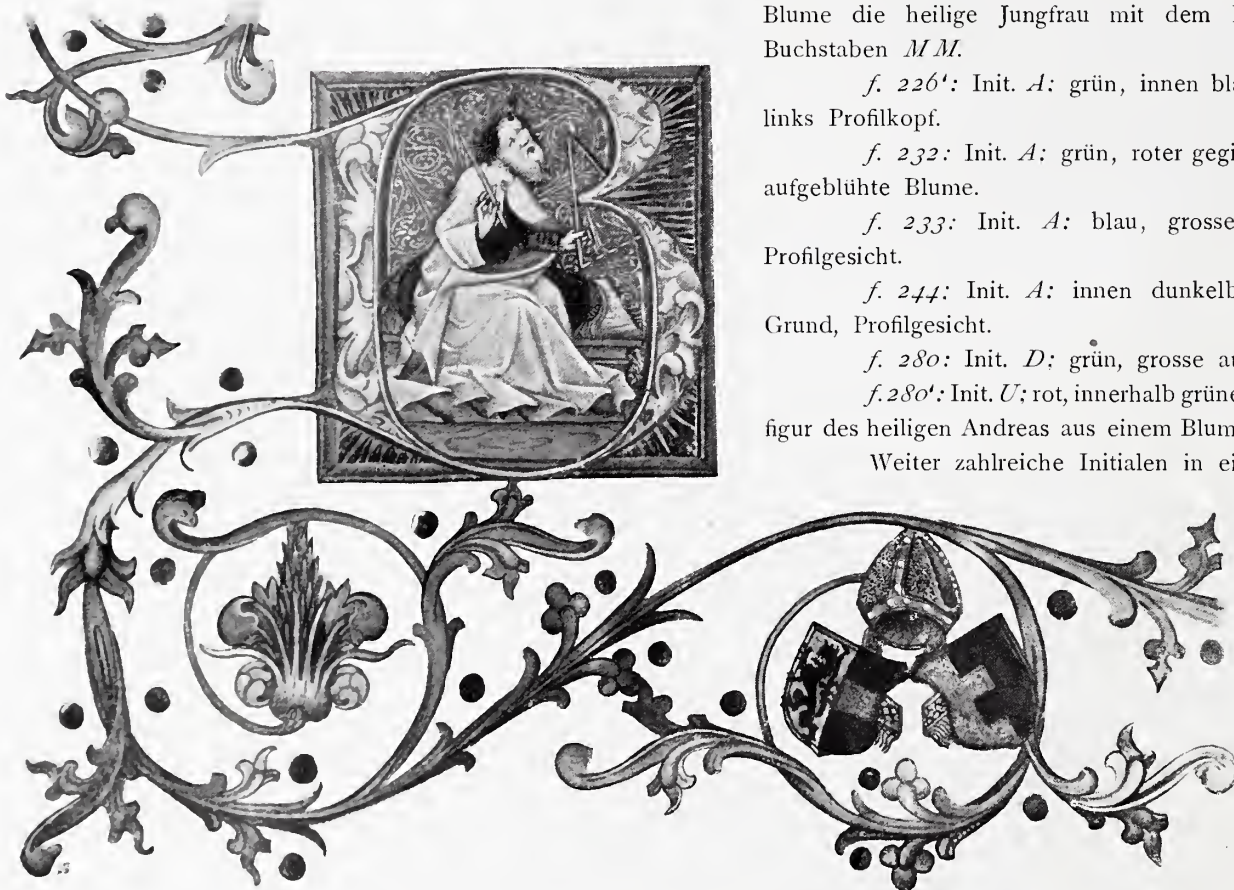 Blume die heilige Jungfrau mit dem
Buchstaben MM.
f. 226': Init. A: grün, innen bla
links Profilkopf.
f. 232: Init. A: grün, roter gegi
aufgeblühte Blume.
f. 233: Init. A: blau, grosse
Profilgesicht.
f. 244: Init. A: innen dunkelb
Grund, Profilgesicht.
f. 280: Init. D: grün, grosse au
f. 280': Init. U: rot, innerhalb grüne
figur des heiligen Andreas aus einem Blum
Weiter zahlreiche Initialen in ei